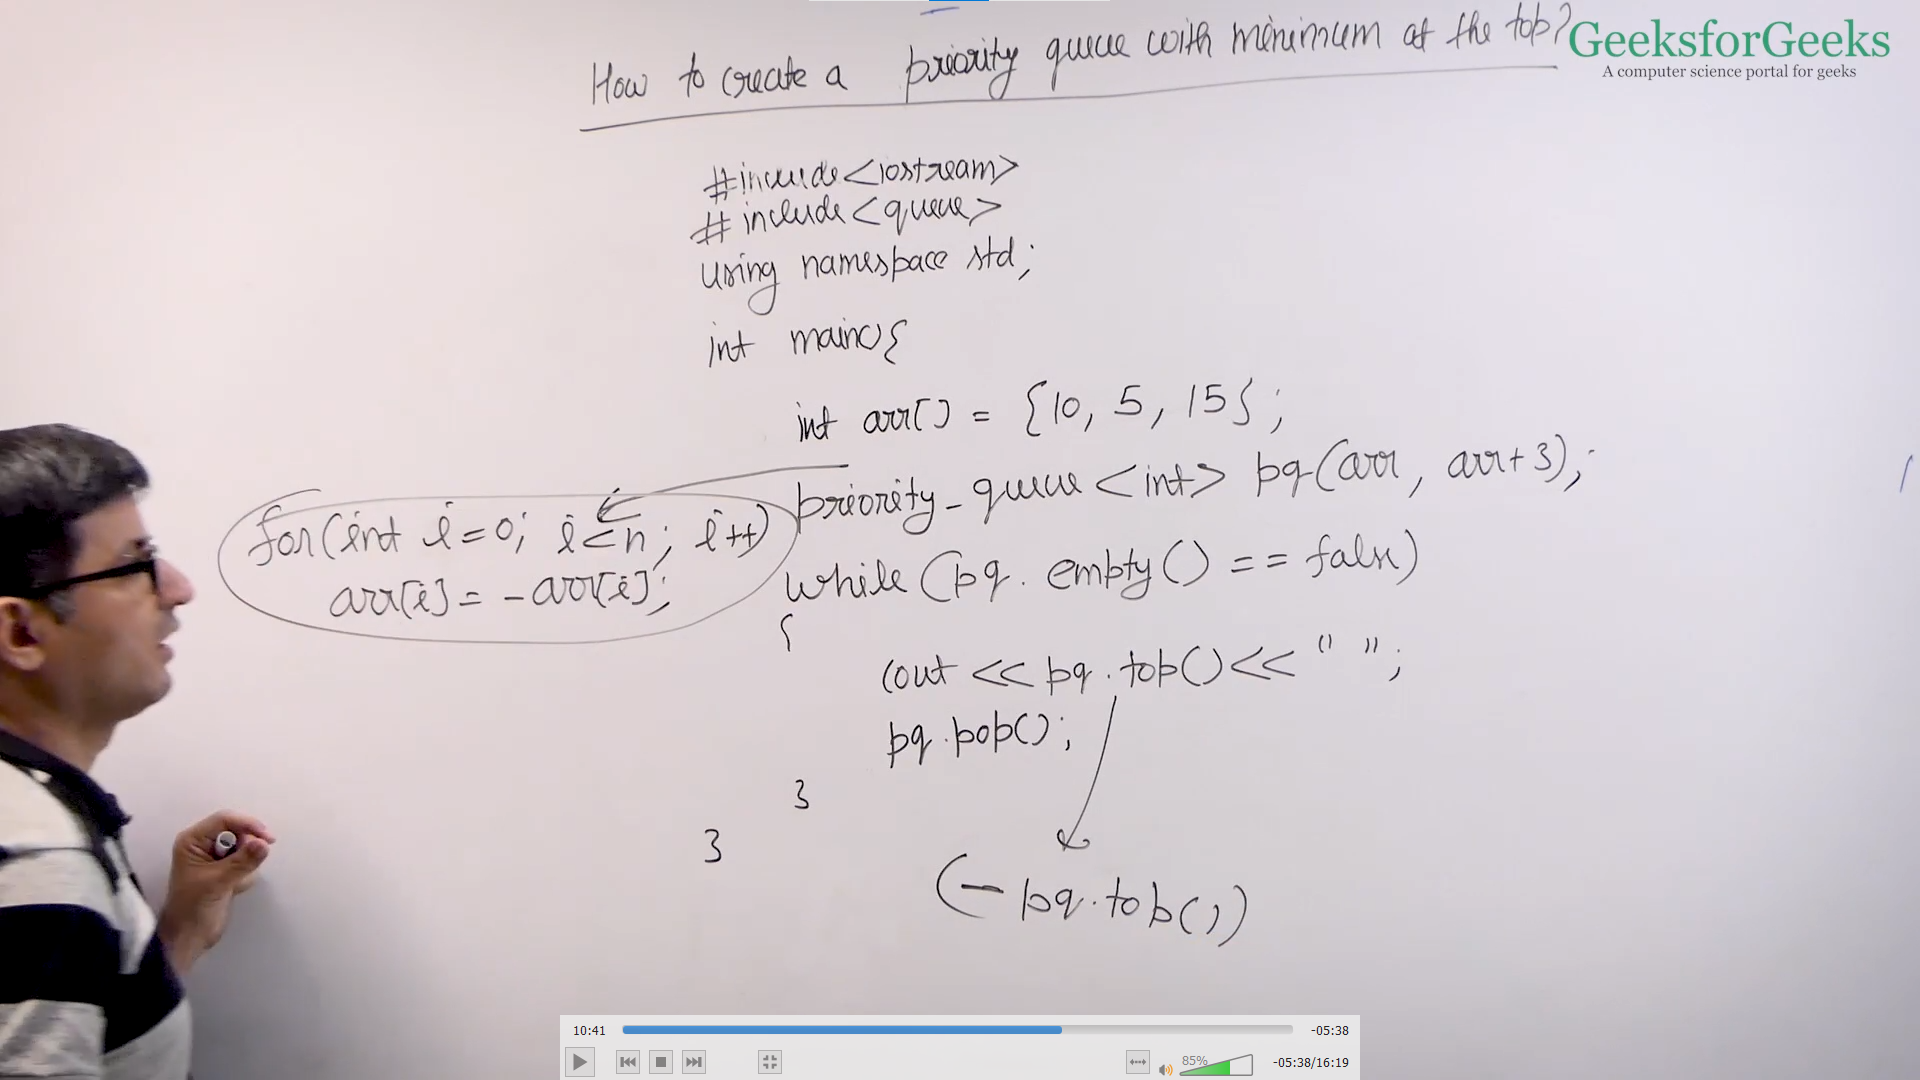 How to create a priority queue with minimum at the top?
GeeksforGeeks
A computer science portal for geeks
#include<iostream>
#include<queue>
using namespace std;
int main(){
int arr[] = {10, 5, 15};
priority_queue<int> pq(arr, arr+3);
for(int i=0; i<n; i++)
arr[i] = -arr[i];
while(pq.empty() == false)
{
cout << pq.top() << " ";
pq.pop();
}
}
(-pq.top())
10:41
-05:38
85%
-05:38/16:19